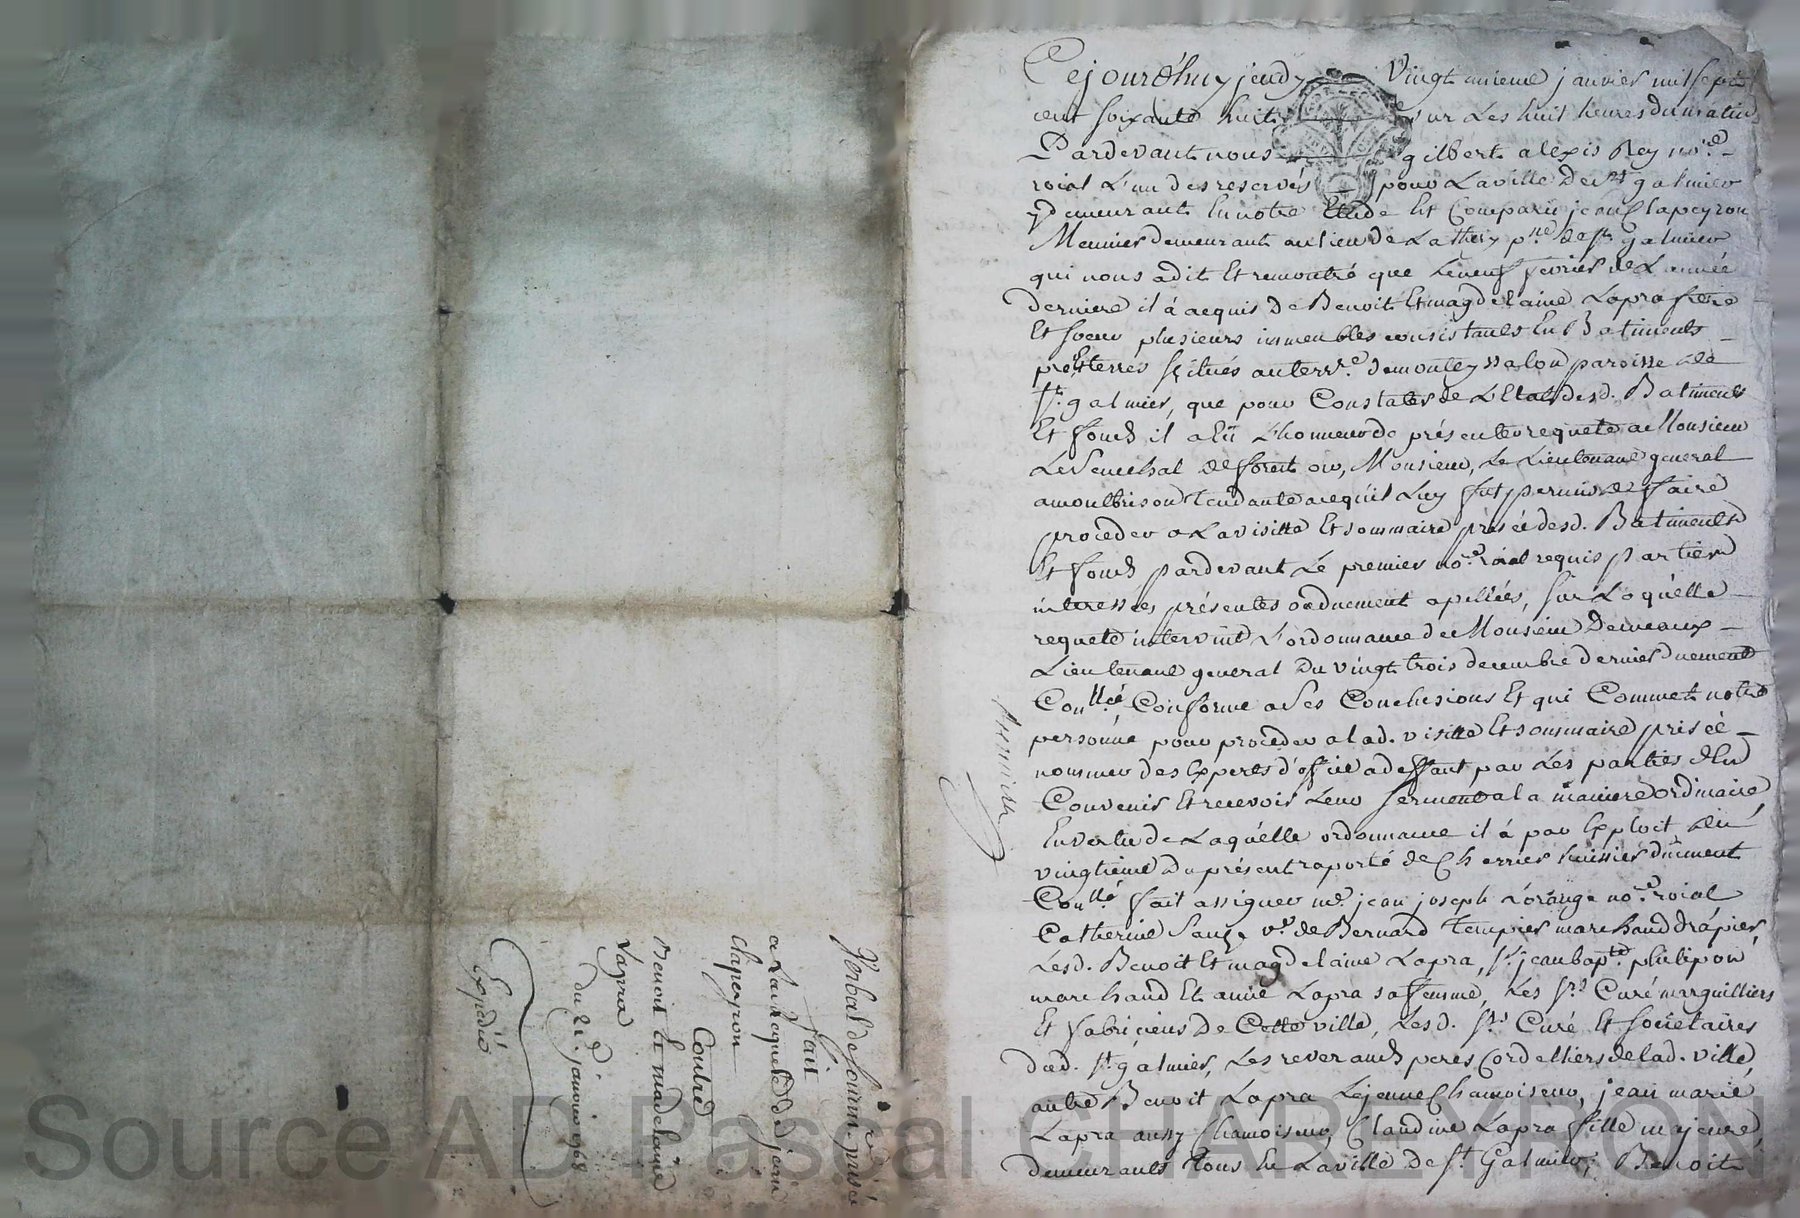 Verbal de somm.re prisée
fait
a La requete de jean
Clapeyron
Contre
Benoit Et madelaine
Lapra
du 21.e janvier 1768
Expedié
Cejourd'huy jeudy vingt unieme janvier mil sept
cent soixante huit sur Les huit heures du matin
Pardevant nous gilbert alexis Rey no.re
roial L'un des reservés pour La ville de st galmier
y demeurant En notre Etude Et Comparu jean Clapeyron
Meunier demeurant au lieu de La thery p.sse de st galmier
qui nous a dit Et remontré que Le neuf fevrier de L'année
derniere il à acquis de Benoit Et magdelaine Lapra frere
Et soeur plusieurs immeubles consistants En Batiments
prés Et terres situés au terr.e de monteyssalon paroisse de
st galmier, que pour Constater de L'Etat desd. Batiments
Et fonds il a Eü L'honneur de présenter requete a Monsieur
Le Senechal de forest ou, Monsieur, Le Lieutenant general
a montbrison tendante acequ'il Luy fut permis de faire
proceder a La visitte Et sommaire prisée desd. Batiments
Et fonds pardevant Le premier no.re roial requis parties
interessées présentes ou duement apellées, sur Laquélle
requete intervint L'ordonnance de Monsieur Demeaux
Lieutenant general du vingt trois decembre dernier duement
Conllée Conforme a Ses Conclusions Et qui Commet notre
personne pour proceder a lad. visitte Et sommaire prisée
nommer des Experts d'office a deffaut par Les parties d'En
Convenir Et recevoir Leur serment a la maniere ordinaire,
En vertu de Laquélle ordonnance il á par Exploit du
vingtieme du présent raporté de Cherrier huissier dûment
Conllé fait assigner me. jean joseph L'orange no.re roial
Catherine Sauze v.e de Bernard tempier marchand drápier,
Lesd. Benoit Et magdelaine Lapra, s.r jean bapt.e philipon
marchand Et anne Lapra sa femme, Les srs Curé marguilliers
Et fabriciens de Cette ville, Lesd. srs Curé Et societaires
dud. st galmier, Les reverands peres Cordelliers de lad. ville,
autre Benoit Lapra Le jeune Chamoiseur, jean marie
Lapra aussy Chamoiseur, Claudine Lapra fille majeure,
demeurants tous En La ville de st Galmier, Benoit
Source AD Pascal CHAREYRON